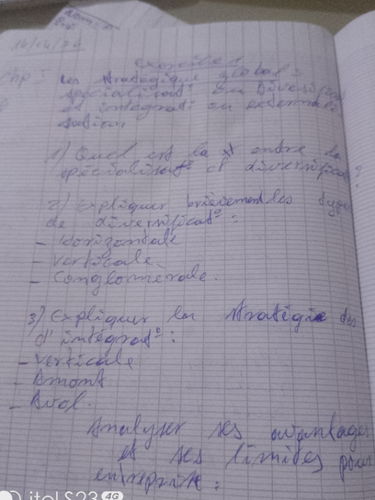 Exercice 1
Chp I les stratégique global:
spécialisat° ou Diversificat
et integrat° ou externali
sation
1) Quel est la ≠ entre la
spécialisat° et diversificat°?
2) Expliquer brièvement les types
de diversificat°:
- Horizontale
- Verticale
- Conglomérale.
3) Expliquer les stratégie des
d'intégrat°:
- Verticale
- Amont
- Aval.
Analyser ses avantages
et ses limites pour
entreprise:
itel S23 4G